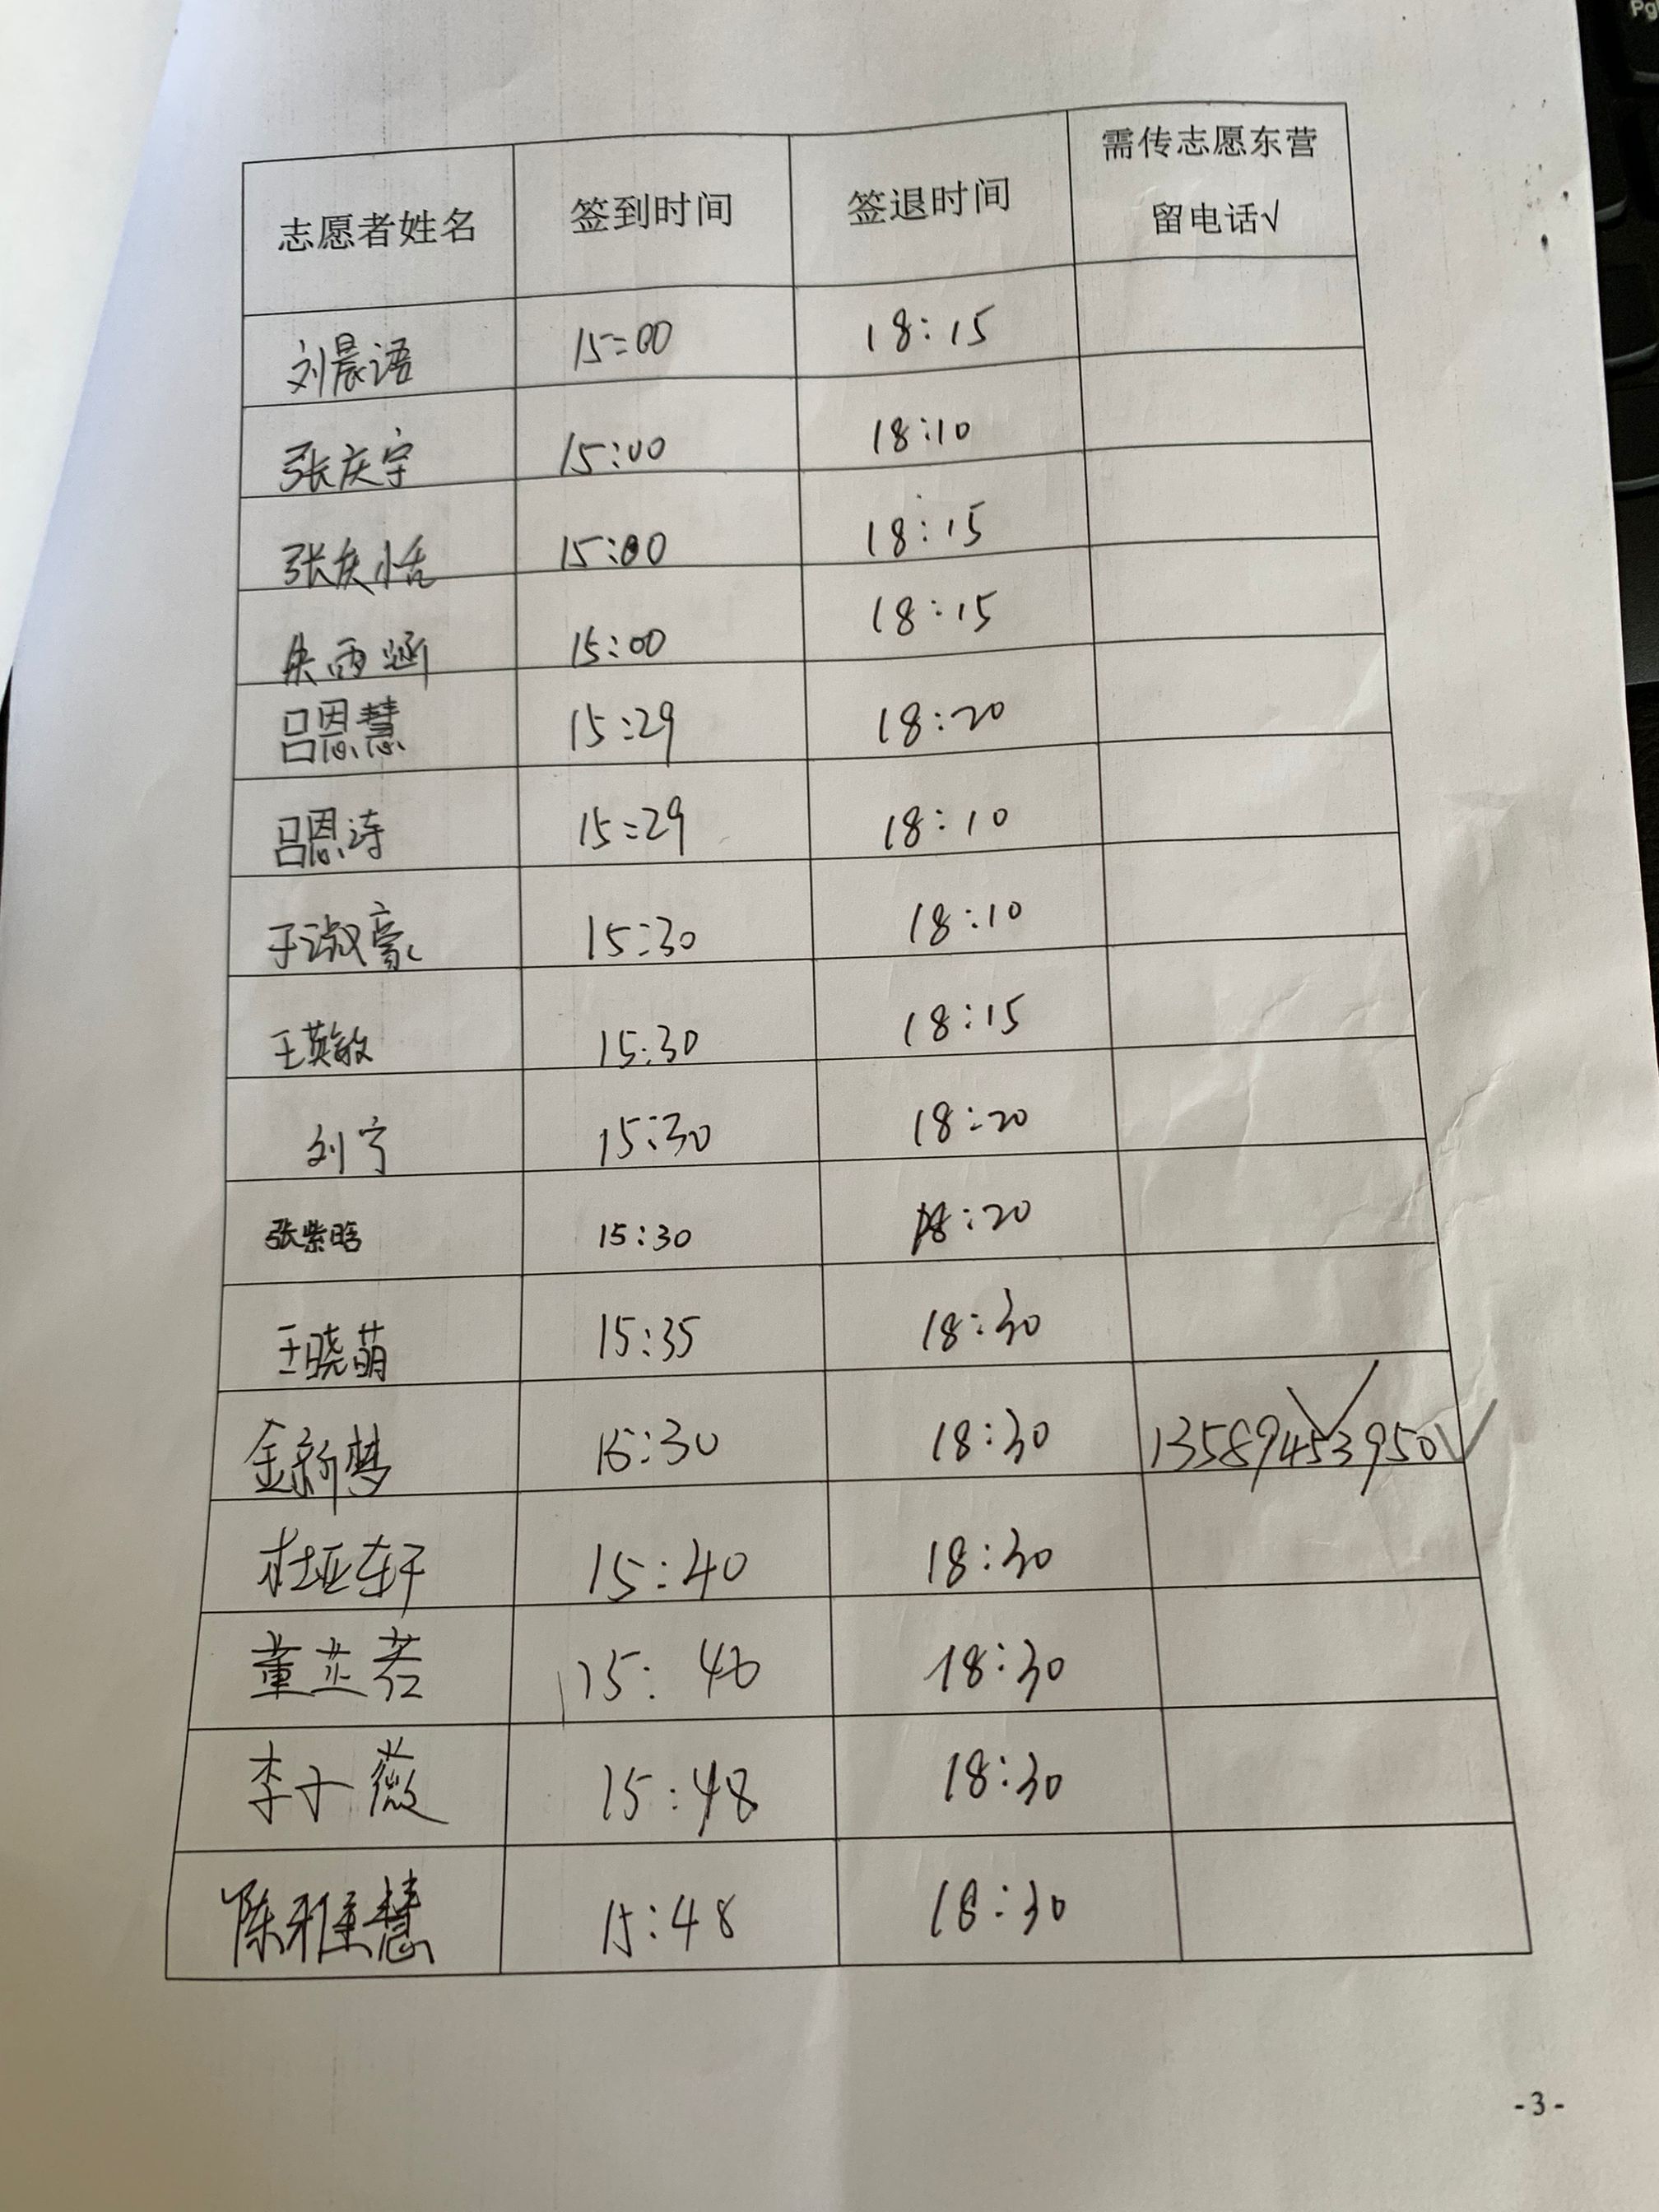 志愿者姓名 签到时间 签退时间 需传志愿东营
留电话√
刘晨语 15:00 18:15
张庆宇 15:00 18:10
张庆恬 15:00 18:15
雨涵 15:00 18:15
吕恩慧 15:29 18:20
吕恩涛 15:29 18:10
于淑豪 15:30 18:10
王英敏 15:30 18:15
刘宁 15:30 18:20
张紫晗 15:30 18:20
王晓萌 15:35 18:30
金新梦 15:30 18:30 13589453950√
杜亚轩 15:40 18:30
董芷若 15:40 18:30
李子薇 15:48 18:30
陈雅慧 15:48 18:30
-3-